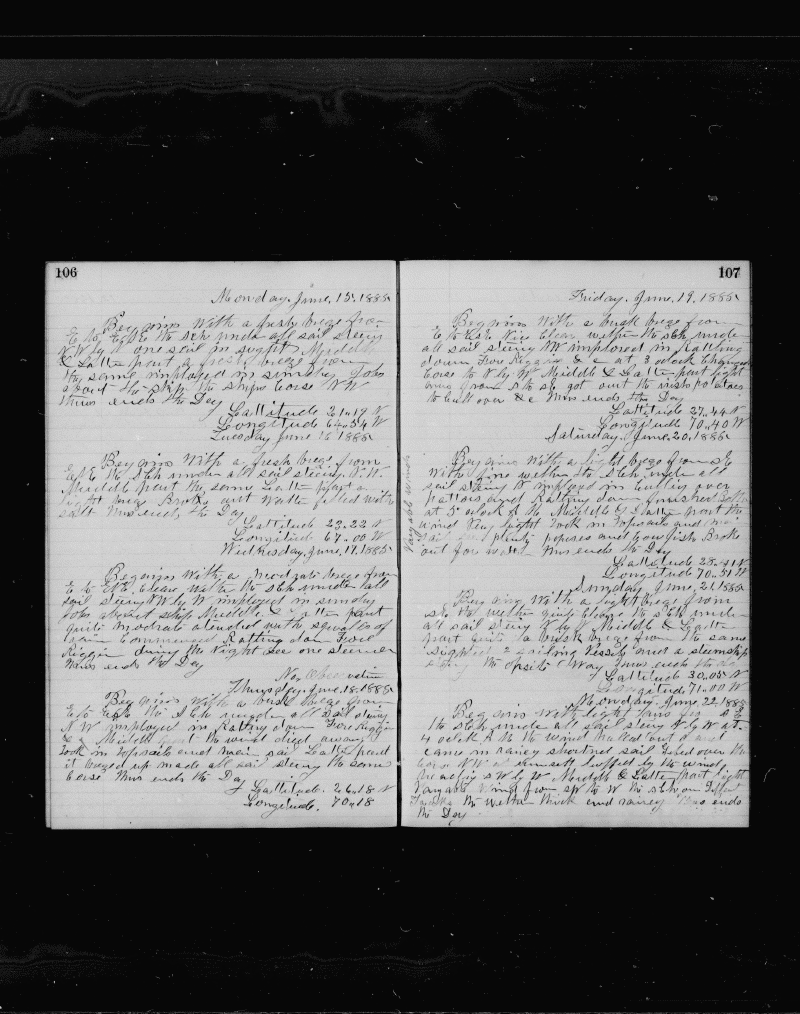 106
Monday, June, 15, 1885
Begins With a fresh brege from
E to ESE the Sch under all sail steering
N W by W one sail in sight Middle
& Latter part a fresh brege from
the same imployed in sundry Jobs
about the ship the ships Corse NW
thus ends the Day
Lattitude 21.19 N
Longitude 64.54 W
Tuesday June 16 1885
Begins With a fresh brege from
E the Sch under all sail steering N.W.
Middle part the same Latter part a
light Broke out Water filled with
salt thus ends the Day
Lattitude 23.22 N
Longitud 67.00 W
Wednesday, June, 17, 1885
Begins With a modrate brege from
E to clear wether the Sch under all
sail steering NW by W imployed in sundry
Jobs about ship Middle & Latter part
quite modrate atended with squalls of
rain Commenced Ratling down Fore
Riggin during the Night See one steemer
thus ends the Day
No Observation
Thursday, June, 18, 1885
Begins With a brisk brege from
E to ESE the Sch under all sail steering
N W imployed in Ratling down Fore Riggin
& c Middle part the wind died away
took in topsails and main sail Latter part
it breezed up made all sail steering the same
Corse thus ends the Day
Lattitude. 26.18 N
Longitude. 70.18
107
Friday, June, 19, 1885
Begins With a brisk brege from
E to ESE fine Clear wether the Sch under
all sail steering NW imployed in Ratling
down Fore Riggin & c at 3 oclock Changed
Corse to N by W Middle & Latter part light
airs from S to SE got out the potatoes
to Cull over & c thus ends the Day
Lattitude 27.44 N
Longitude 70.40 W
Saturday, June, 20, 1885
Variable winds
Begins With a light brege from SE
With fine wether the Sch under all
sail steering N imployed in Culling over
pattatos and Ratling down finished Both
at 5 oclock the Middle & Latter part the
wind Very light took in topsails and main
sail plenty poposes and Cowfish Broke
out for water thus ends the Day
Lattitude 28.41 N
Longitude 70.51 W
Sunday June, 21, 1885
Begins With a light brege from
SE the wether quite Cloudy the Sch under
all sail steering N by W Middle & Latter
part quite a brisk brege from the same
Sighted 2 sailing Vessels and a steemship
steering the opsite Way thus ends the day
Lattitude 30.05 N
Longitude 71.00 W
Monday, June, 22, 1885
Begins With light airs from SSE
the Sch under all sail steering N by W at
4 oclock the wind hauled out and
came in rainey shortned sail Heded over the
Corse NW at sunsett luffed by the wind
heading S W by W Middle & Latter part light
Varyable Wind from SW to W the Sch on Different
Tacks the wether thick and rainey Thus ends
the Day